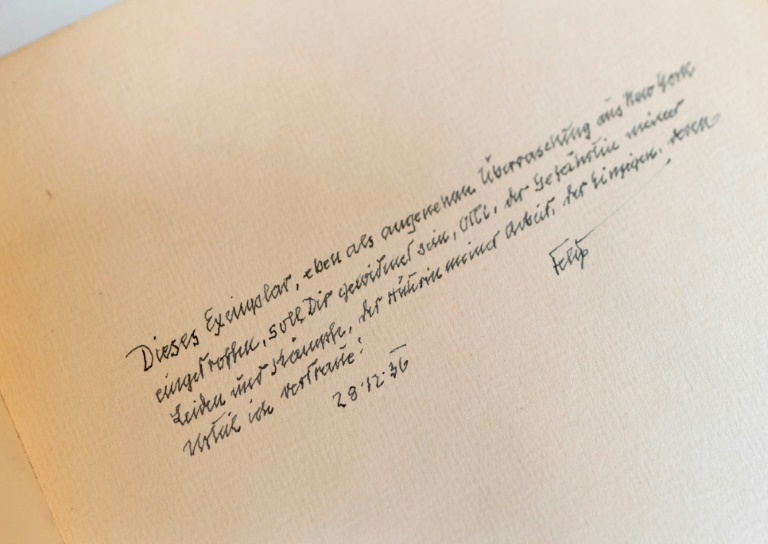 Dieses Exemplar, eben als angenehme Überraschung aus New York
eingetroffen, soll Dir gewidmet sein, Olli, der Gefährtin meiner
Leiden und Kämpfe, der Hüterin meiner Arbeit, der Einzigen, deren
Urteil ich vertraue!
28·12·36
Felix